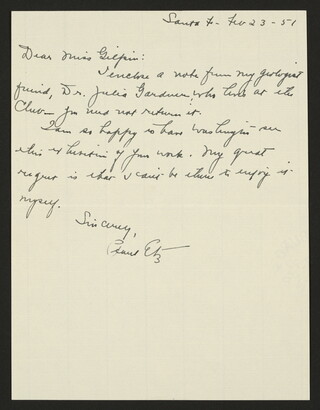 Santa Fe - Feb 23 - 51
Dear Miss Gilpin:
I enclose a note from my geologist
friend, Dr. Julia Gardner who lives at the
Club - You need not return it.
I am so happy to have Washington see
this exhibition of your work. My great
regret is that I can't be there to enjoy it
myself.
Sincerely,